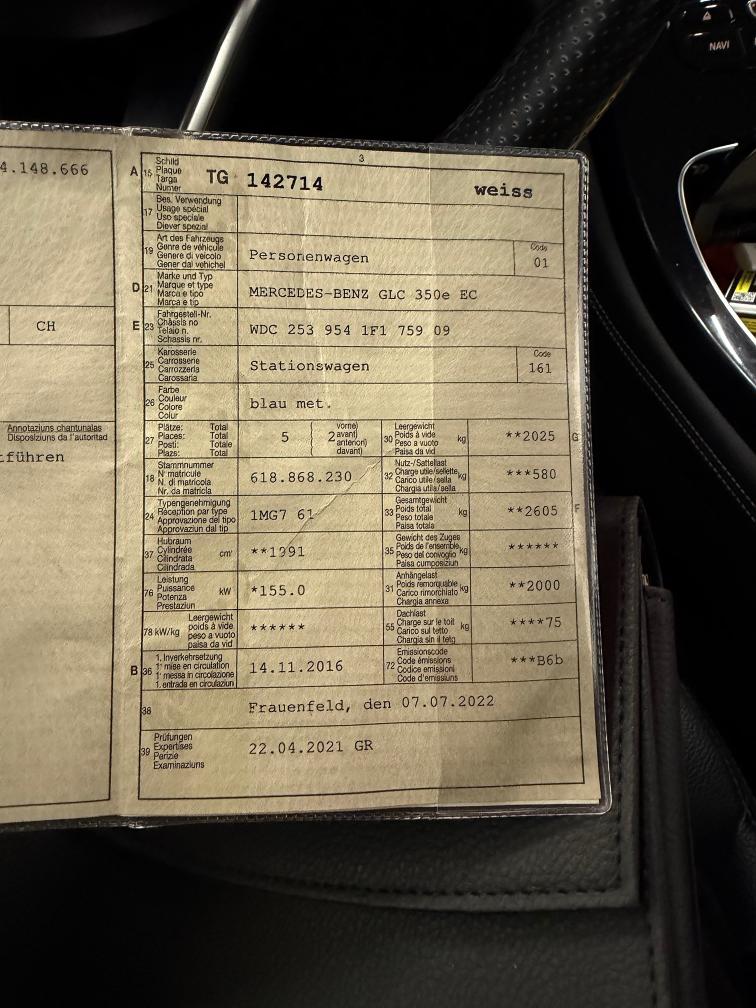 NAVI
4.148.666
CH
Annotaziuns chantunalas
Disposiziuns da l'autoritad
führen
3
A 15 Schild
Plaque
Targa
Numer
TG 142714 weiss
17 Bes. Verwendung
Usage spécial
Uso speciale
Diever spezial
19 Art des Fahrzeugs
Genre de véhicule
Genere di veicolo
Gener dal vehichel
Personenwagen
Code
01
D 21 Marke und Typ
Marque et type
Marca e tipo
Marca e tip
MERCEDES-BENZ GLC 350e EC
E 23 Fahrgestell-Nr.
Châssis no
Telaio n.
Schassis nr.
WDC 253 954 1F1 759 09
25 Karosserie
Carrosserie
Carrozzeria
Carossaria
Stationswagen
Code
161
26 Farbe
Couleur
Colore
Colur
blau met.
27 Plätze: Total
Places: Total
Posti: Totale
Plazs: Total
5
2 vorne)
avant)
anteriori)
davant)
30 Leergewicht
Poids à vide
Peso a vuoto
Paisa da vid
kg
**2025
G
18 Stammnummer
N° matricule
N. di matricola
Nr. da matricla
618.868.230
32 Nutz-/Sattellast
Charge utile/sellette
Carico utile/sella
Chargia utila/sella
kg
***580
24 Typengenehmigung
Réception par type
Approvazione del tipo
Approvaziun dal tip
1MG7 61
33 Gesamtgewicht
Poids total
Peso totale
Paisa totala
kg
**2605
F
37 Hubraum
Cylindrée
Cilindrata
Cilindrada
cm³
**1991
35 Gewicht des Zuges
Poids de l'ensemble
Peso del convoglio
Paisa cumposiziun
kg
******
76 Leistung
Puissance
Potenza
Prestaziun
kW
*155.0
31 Anhängelast
Poids remorquable
Carico rimorchiato
Chargia annexa
kg
**2000
78 kW/kg
Leergewicht
poids à vide
peso a vuoto
paisa da vid
******
55 Dachlast
Charge sur le toit
Carico sul tetto
Chargia sin il tetg
kg
****75
B 36 1. Inverkehrsetzung
1re mise en circulation
1a messa in circolazione
1. entrada en circulaziun
14.11.2016
72 Emissionscode
Code émissions
Codice emissioni
Code d'emissiuns
***B6b
38
Frauenfeld, den 07.07.2022
39 Prüfungen
Expertises
Perizie
Examinaziuns
22.04.2021 GR